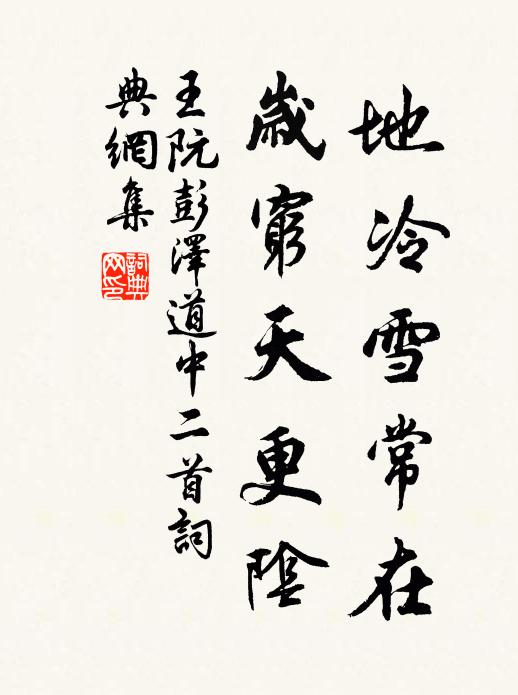 地冷雪常在
歲窮天更陰
王阮彭澤道中二首詞
典網集
詞典
网印